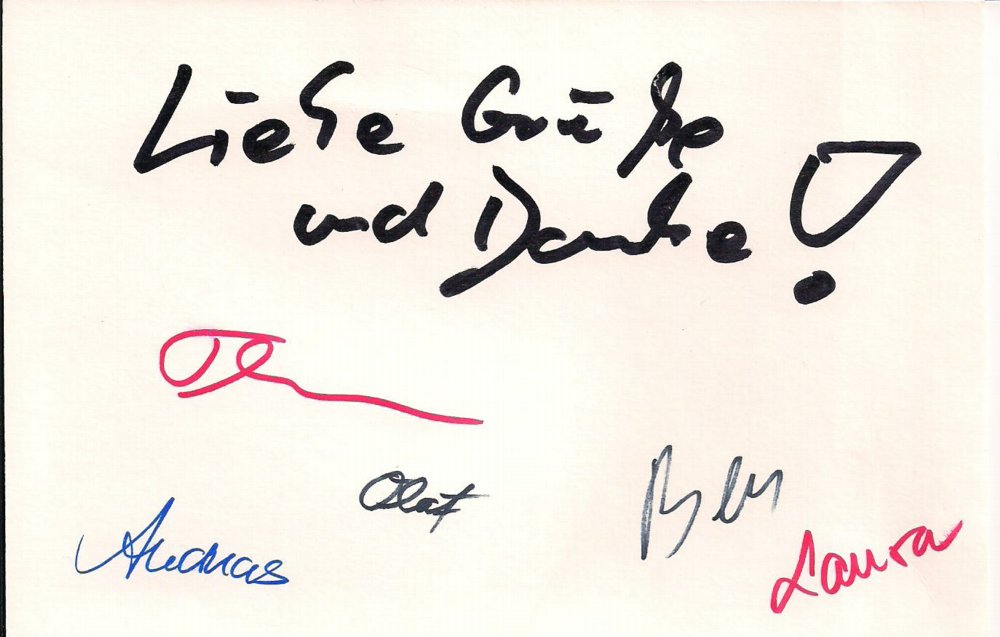 Liebe Grüße
und Danke!
Olaf
Andreas
Laura